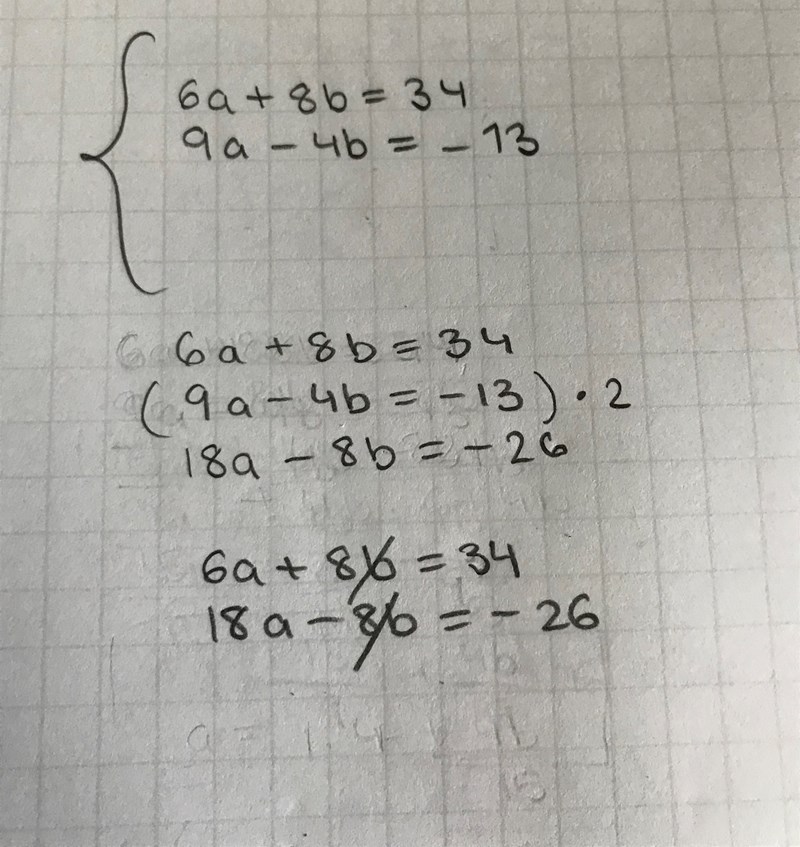 6a + 8b = 34
9a - 4b = - 13
6a + 8b = 34
(9a - 4b = -13) · 2
18a - 8b = - 26
6a + 8b = 34
18a - 8b = - 26